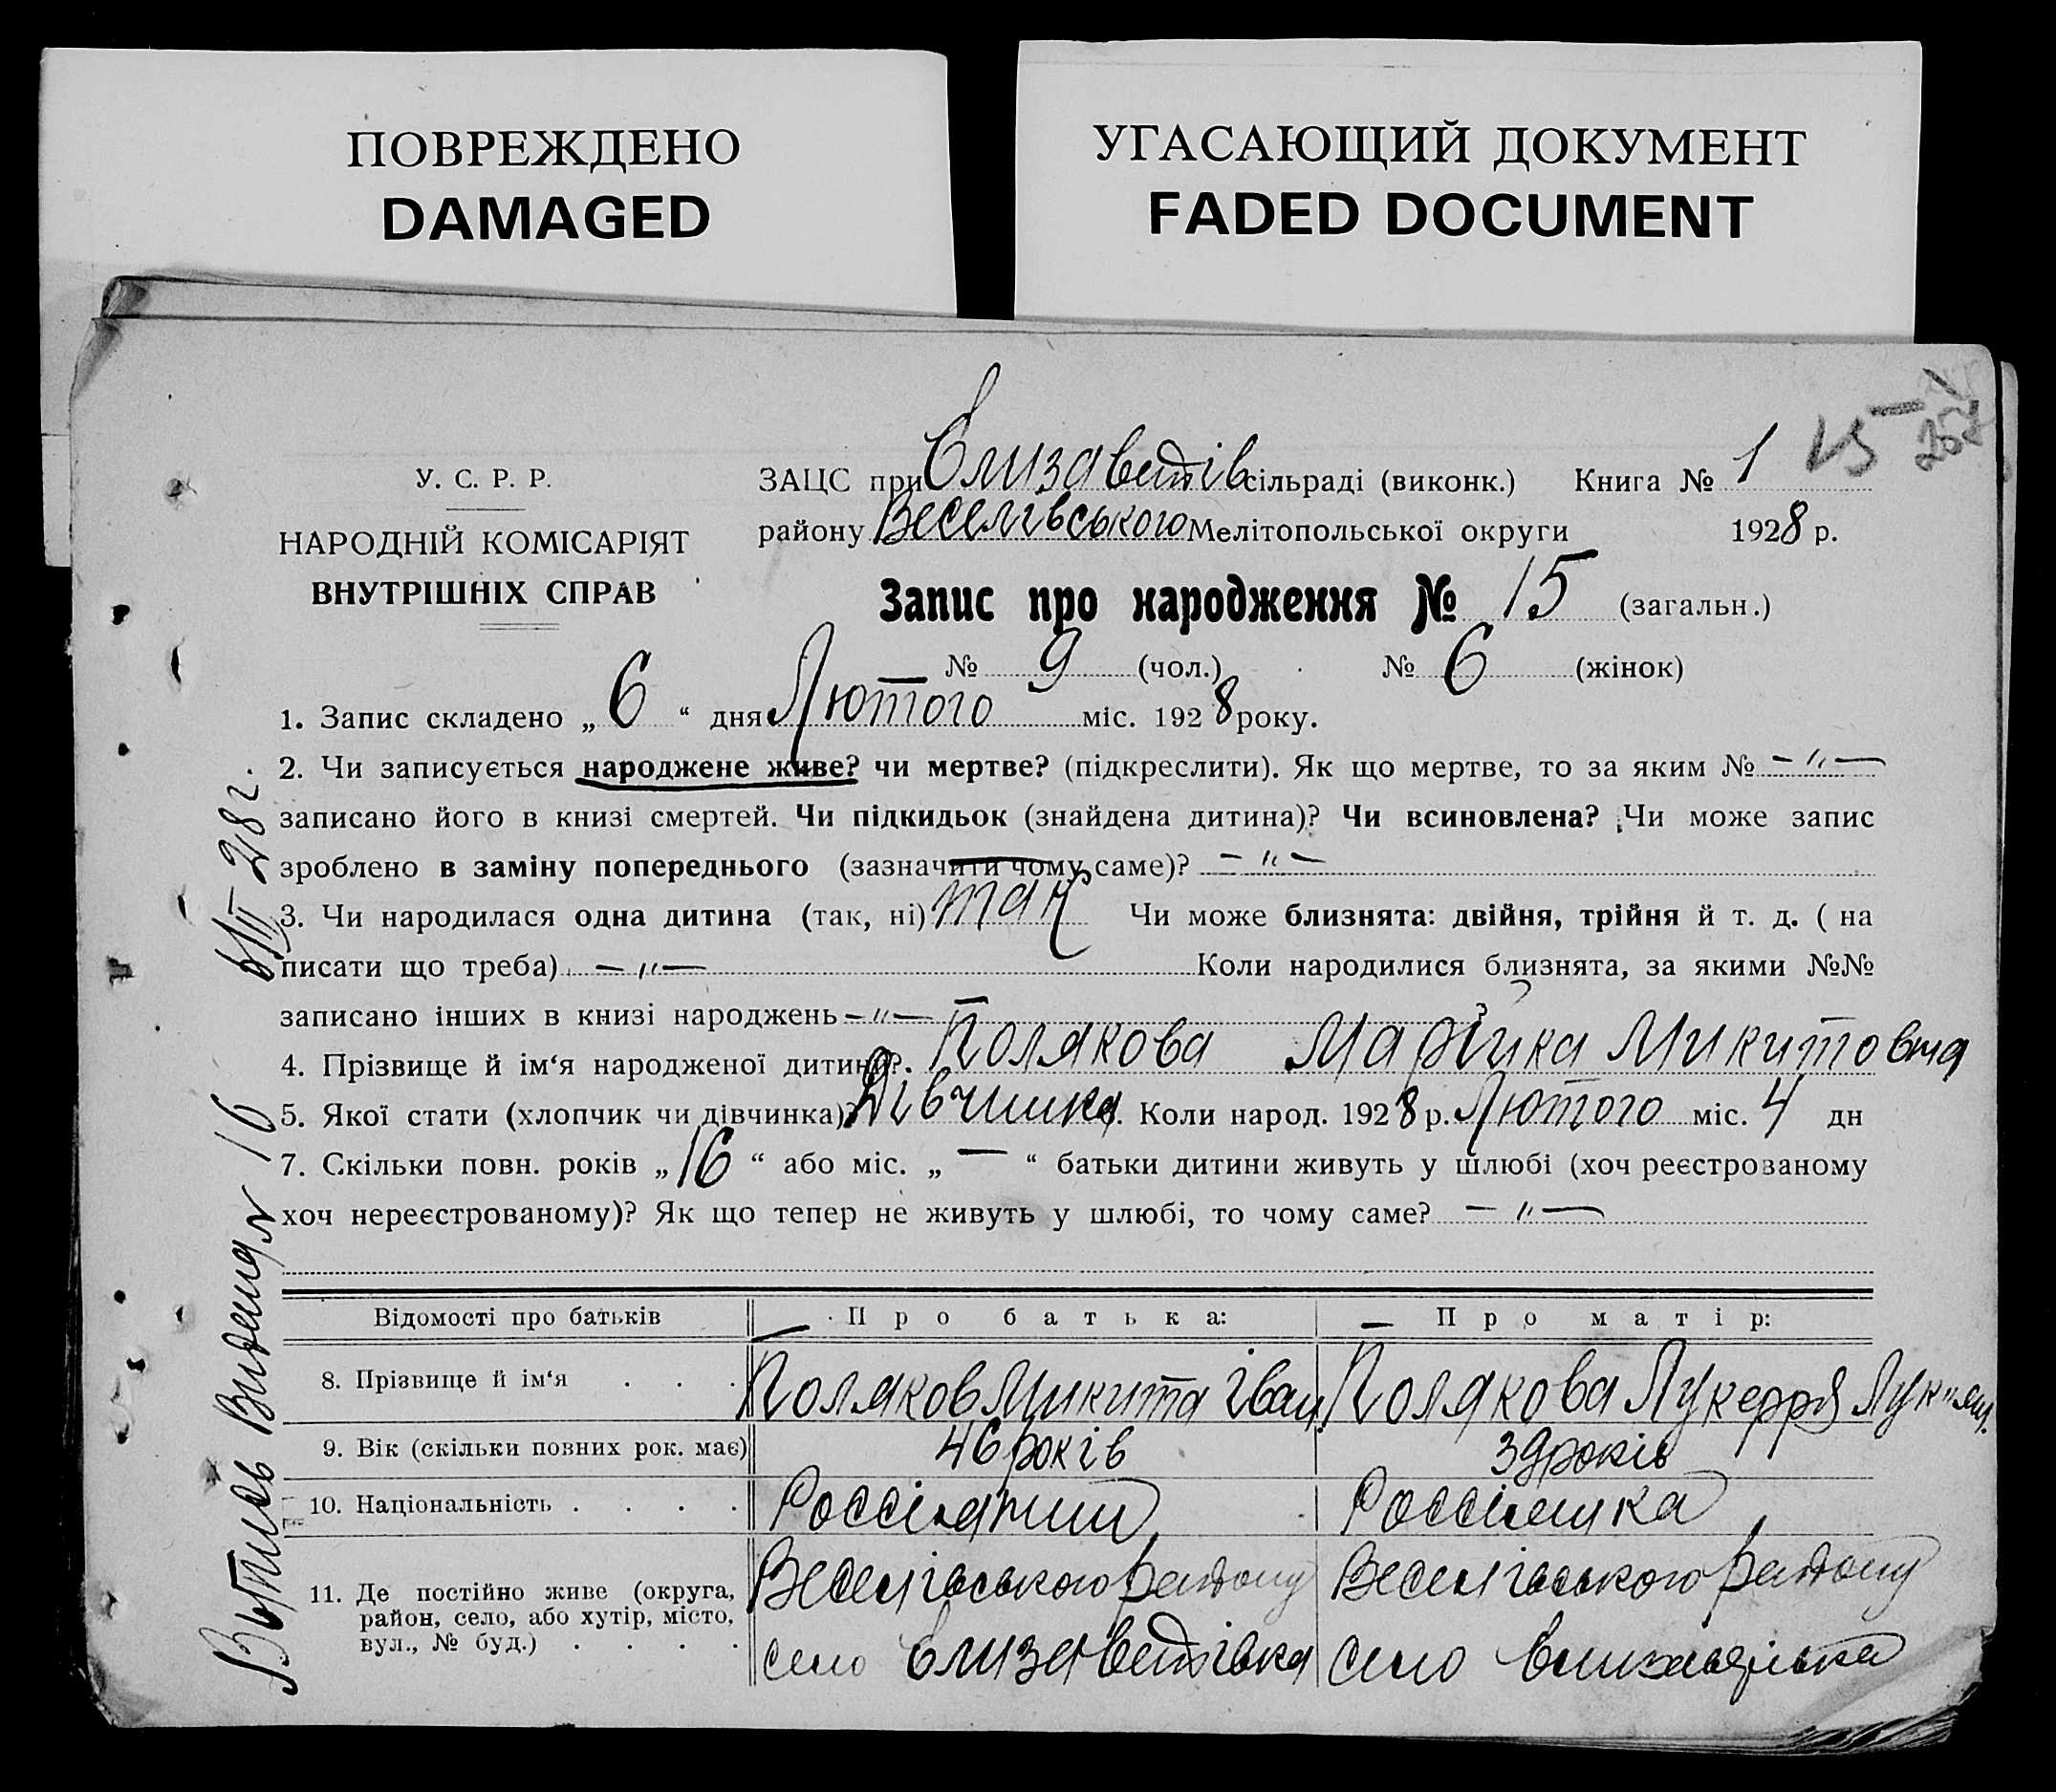 ПОВРЕЖДЕНО
DAMAGED
УГАСАЮЩИЙ ДОКУМЕНТ
FADED DOCUMENT
У. С. Р. Р.
НАРОДНІЙ КОМІСАРІЯТ
ВНУТРІШНІХ СПРАВ
ЗАЦС при Єлизаветів сільраді (виконк.) Книга № 1
району Веселівського Мелітопольської округи 1928 р.
Запис про народження № 15 (загальн.)
№ 9 (чол.) № 6 (жінок)
1. Запис складено „ 6 “ дня Лютого міс. 1928 року.
2. Чи записується народжене живе? чи мертве? (підкреслити). Як що мертве, то за яким № - " -
записано його в книзі смертей. Чи підкидьок (знайдена дитина)? Чи всиновлена? Чи може запис
зроблено в заміну попереднього (зазначити чому саме)? - " -
3. Чи народилася одна дитина (так, ні) так Чи може близнята: двійня, трійня й т. д. ( на
писати що треба) - " - Коли народилися близнята, за якими №№
записано інших в книзі народжень - " -
4. Прізвище й ім‘я народженої дитини? Полякова Марійка Микитовна
5. Якої стати (хлопчик чи дівчинка)? Дівчинка. Коли народ. 1928 р. Лютого міс. 4 дн
7. Скільки повн. років „ 16 “ або міс. „ — “ батьки дитини живуть у шлюбі (хоч реєстрованому
хоч нереєстрованому)? Як що тепер не живуть у шлюбі, то чому саме? - " -
Відомості про батьків Про батька: Про матір:
8. Прізвище й ім‘я . . . Поляков Микита Іван. Полякова Лукерря
9. Вік (скільки повних рок. має) 46 років 39 років
10. Національність . . . . Россіянин Россіянка
11. Де постійно живе (округа, район, село, або хутір, місто, вул., № буд.) . . . .
Веселівського району Веселівського району
село Єлизаветівка село Єлизаветівка